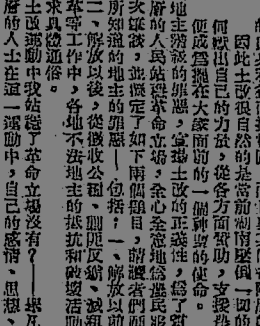 因此土改很自然的是當前湖南壓倒一切的
何獻出自己的力量，從各方面幫助，支援
便成爲擺在大家面前的一個神聖的使命。
地主階級的罪惡，宣揚土改的正義性，爲了
府的人民站穩革命立場，全心全意地爲農民服
如下兩個題目，請讀者們
所知道的地主的罪惡——包括：一、解放以前
二、解放以後，從徵收公糧、剿匪反霸、減租
等工作中，各地不法地主的抵抗和破壞活動
求具體通俗。
土改運動中我站穩了革命立場沒有？——
府的人士在這一運動中，自己的感情、思想、